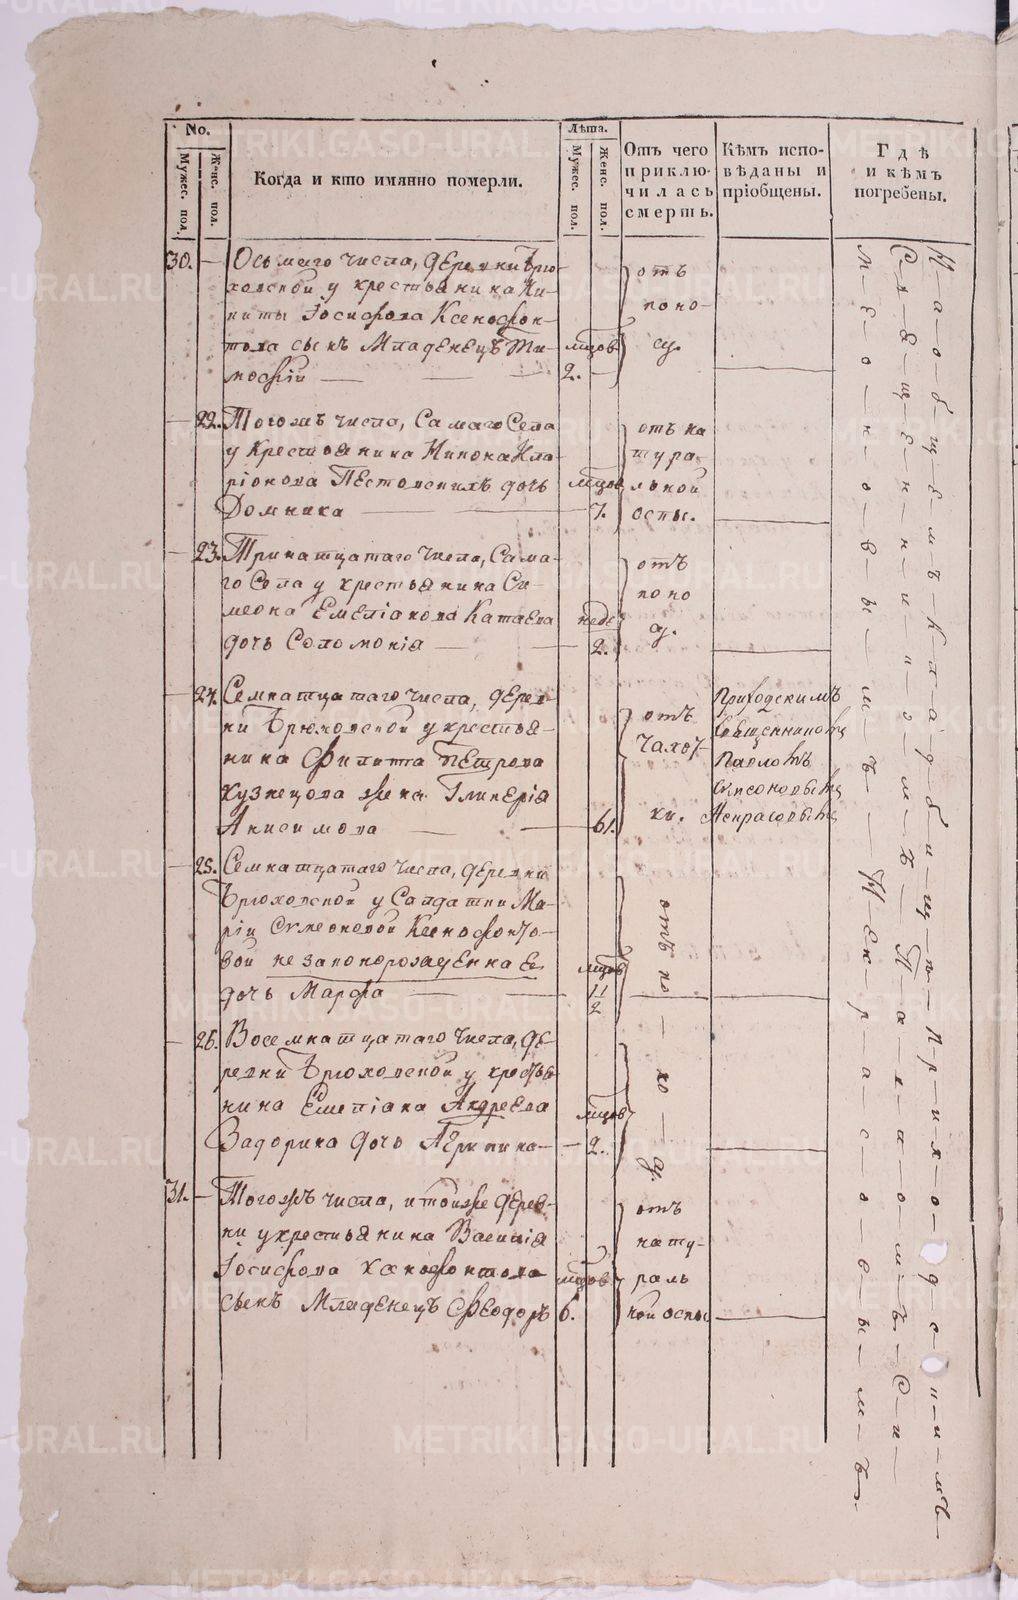 No.
Мужес. пол.
Женс. пол.
Когда и кто имянно померли.
Лѣта.
Мужес. пол.
Женс. пол.
Отъ чего приклю-
чилась смерть.
Кѣмъ испо-
вѣданы и
пріобщены.
Гдѣ
и кѣмъ
погребены.
30. — Осьмаго числа, деревни Брю-
ховской у крестьянина Ки-
Іосифова Ксенофон-
това сынъ Младенецъ Ти-
мофій
мцов
2.
отъ
поно-
су.
22. Тогожъ числа, Самаго Села
у Крестьянина Никона Ила-
ріонова Пестовскихъ дочь
Домника
мцов
7.
отъ на
тура-
льной
оспы.
23. Тринатцатаго числа, Сама-
го Села у крестьянина Си-
меона Емеліанова Катаева
дочь Соломонія
неде
2.
отъ
поно
су.
24. Семнатцатаго числа, дерев-
ни Брюховской у крестья-
нина Филиппа Петрова
Кузнецова жена Гликерія
Анисимова
61.
отъ
чахот-
ки.
Приходскимъ
Священникомъ
Павломъ
Симсоновымъ
Некрасовымъ
25. Семнатцатаго числа, деревни
Брюховской у Салдатки Ма-
ріи Симеоновой Ксенофонто-
вой незаконорожденная
дочь Марфа
мцов
11
2
отъ по — но — су.
26. Восемнатцатаго числа, де-
ревни Брюховской у крестья
нина Емеліана Андреева
Задорина дочь Агрипина —
мцов
2.
31. — Тогожъ числа, и тойже дерев-
ни у крестьянина Василія
Іосифова Ксенофонтова
сынъ Младенецъ Феодоръ
мцов
6.
отъ
нату-
раль
ной оспы
На общемъ Кладбищѣ Приходскимъ
Священникомъ Павломъ Си-
мсоновымъ Некрасовымъ.
METRIKI.GASO-URAL.RU